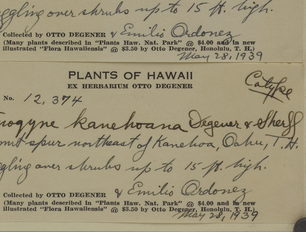 ggling over shrubs up to 15 ft. high.
Collected by OTTO DEGENER & Emilio Ordonez
(Many plants described in "Plants Haw. Nat. Park" @ $4.00 and in new
illustrated "Flora Hawaiiensis" @ $3.50 by Otto Degener, Honolulu, T. H.)
May 28, 1939
PLANTS OF HAWAII
EX HERBARIUM OTTO DEGENER
Cotype
No. 12,374
nogyne kanehoana Degener & Sherff
mit spur northeast of Kanehoa, Oahu, T. H.
ggling over shrubs up to 15 ft. high.
Collected by OTTO DEGENER & Emilio Ordonez
(Many plants described in "Plants Haw. Nat. Park" @ $4.00 and in new
illustrated "Flora Hawaiiensis" @ $3.50 by Otto Degener, Honolulu, T. H.)
May 28, 1939